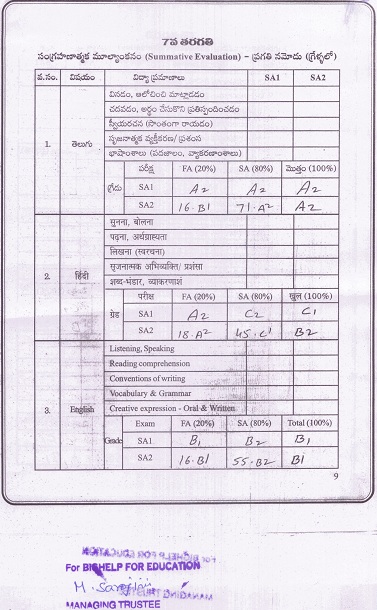 7వ తరగతి
సంగ్రహణాత్మక మూల్యాంకనం (Summative Evaluation) - ప్రగతి నమోదు (గ్రేళ్ళలో)
వ.సం. విషయం విద్యా ప్రమాణాలు SA1 SA2
వినడం, ఆలోచించి మాట్లాడడం
చదవడం, అర్థం చేసుకొని ప్రతిస్పందించడం
స్వీయరచన (సొంతంగా రాయడం)
సృజనాత్మక వ్యక్తీకరణ/ ప్రశంస
భాషాంశాలు (పదజాలం, వ్యాకరణాంశాలు)
1. తెలుగు
పరీక్ష FA (20%) SA (80%) మొత్తం (100%)
గ్రేడు SA1 A2 A2 A2
SA2 16-B1 71-A2 A2
सुनना, बोलना
पढ़ना, अर्थग्राह्यता
लिखना (स्वरचना)
सृजनात्मक अभिव्यक्ति/ प्रशंसा
शब्द-भंडार, व्याकरणांश
2. हिंदी
परीक्ष FA (20%) SA (80%) कुल (100%)
ग्रेड SA1 A2 C2 C1
SA2 18-A2 45-C1 B2
Listening, Speaking
Reading comprehension
Conventions of writing
Vocabulary & Grammar
Creative expression - Oral & Written
3. English
Exam FA (20%) SA (80%) Total (100%)
Grade SA1 B1 B2 B1
SA2 16-B1 55-B2 B1
9
For BIGHELP FOR EDUCATION
MANAGING TRUSTEE